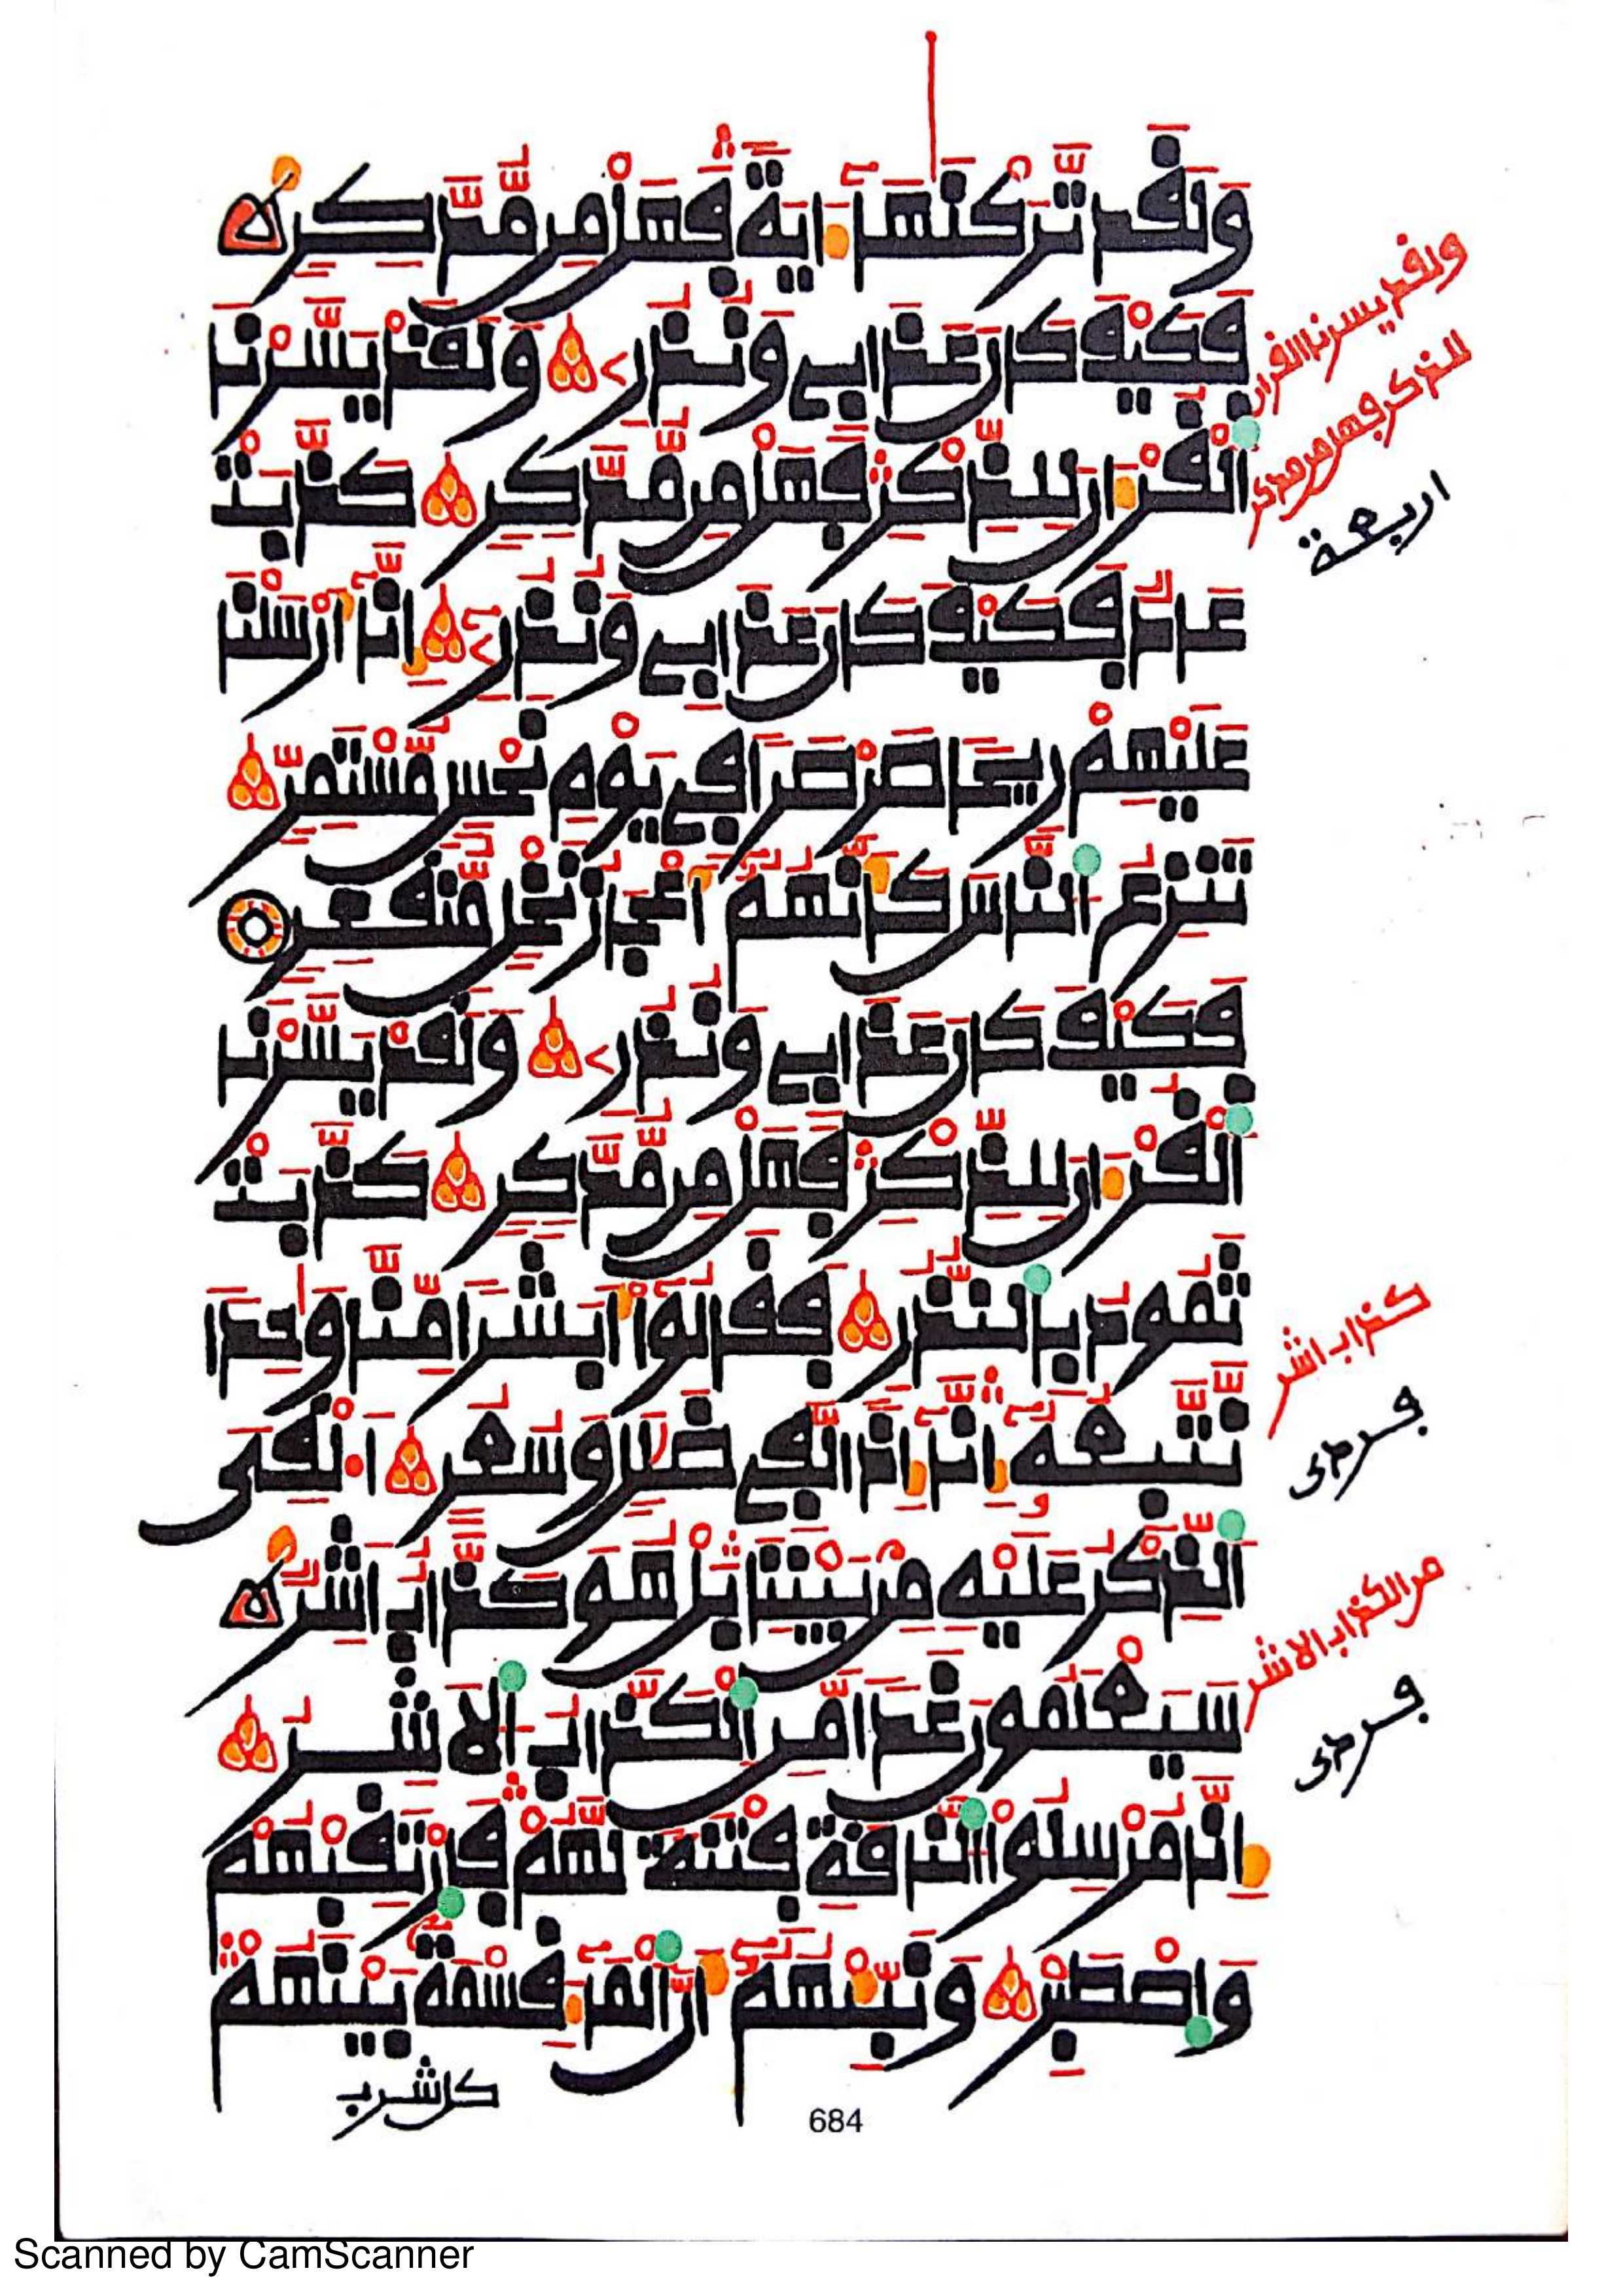 وَلَقَد تَّرَكْنَٰهَآ ءَايَةٗ فَهَلْ مِن مُّدَّكِرٖ
فَكَيْفَ كَانَ عَذَابِے وَنُذُرِۦ وَلَقَدْ يَسَّرْنَا
اَ۬لْقُرْءَانَ لِلذِّكْرِ فَهَلْ مِن مُّدَّكِرٖ كَذَّبَتْ
عَادٞ فَكَيْفَ كَانَ عَذَابِے وَنُذُرِۦٓ إِنَّآ أَرْسَلْنَا
عَلَيْهِمْ رِيحاٗ صَرْصَراٗ فِے يَوْمِ نَحْسٖ مُّسْتَمِرّٖ
تَنزِعُ اُ۬لنَّاسَ كَأَنَّهُمُۥٓ أَعْجَازُ نَخْلٖ مُّنقَعِرٖ
فَكَيْفَ كَانَ عَذَابِے وَنُذُرِۦ وَلَقَدْ يَسَّرْنَا
اَ۬لْقُرْءَانَ لِلذِّكْرِ فَهَلْ مِن مُّدَّكِرٖ كَذَّبَتْ
ثَمُودُ بِالنُّذُرِ فَقَالُوٓاْ أَبَشَراٗ مِّنَّا وَٰحِداٗ
نَّتَّبِعُهُۥٓ إِنَّآ إِذاٗ لَّفِے ضَلَٰلٖ وَسُعُرٍ اَ۟لْقِىَ
اَ۬لذِّكْرُ عَلَيْهِ مِنۢ بَيْنِنَا بَلْ هُوَ كَذَّابٌ اَشِرٞ
سَيَعْلَمُونَ غَداٗ مَّنِ اِ۬لْكَذَّابُ اُ۬لَاشِرُ
إِنَّا مُرْسِلُواْ اُ۬لنَّاقَةِ فِتْنَةٗ لَّهُمْ فَارْتَقِبْهُمْ
وَاصْطَبِرْ وَنَبِّئْهُمُۥٓ أَنَّ اَ۬لْمَآءَ قِسْمَةُۢ بَيْنَهُمْ
كل شرب
684
ولقد يسرنا القران
للذكر فهل من مدكر
اربعة
كذاب اشر
من الكذاب الاشر
Scanned by CamScanner